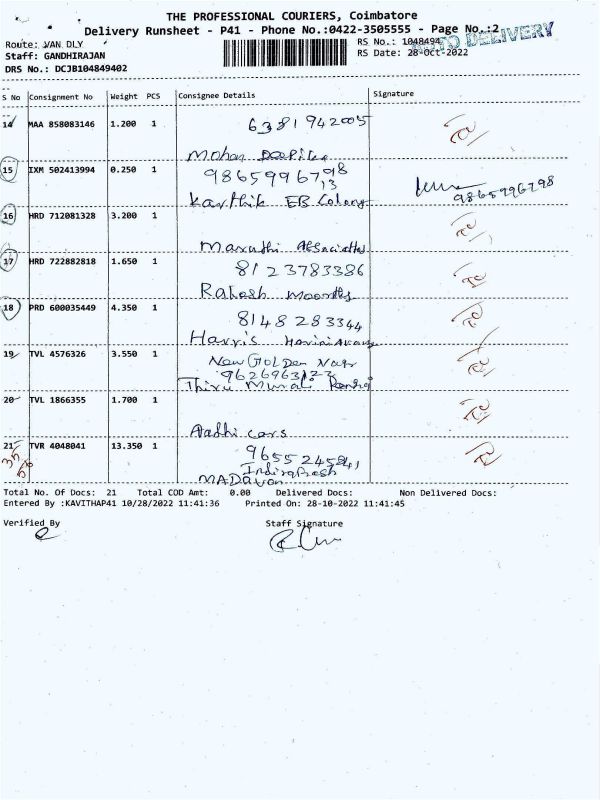 THE PROFESSIONAL COURIERS, Coimbatore
Delivery Runsheet - P41 - Phone No.:0422-3505555 - Page No.:2
Route: VAN DLY
RS No.: 1048494
AUTO DELIVERY
Staff: GANDHIRAJAN
RS Date: 28-Oct-2022
DRS No.: DCJB104849402
S No Consignment No Weight PCS Consignee Details Signature
14 MAA 858083146 1.200 1 6381942005
Mohan
15 IXM 502413994 0.250 1 9865996798
13
Karthik EB Colony 9865996798
16 HRD 712081328 3.200 1
Maruthi Associates
17 HRD 722882818 1.650 1 8123783386
Rakesh Moorthy
18 PRD 600035449 4.350 1 8148283344
Harris
19 TVL 4576326 3.550 1 New Golden Nagar
Thiru Murali
20 TVL 1866355 1.700 1
Aathi cars
21 TVR 4048041 13.350 1
35
56
MADavan
Total No. Of Docs: 21 Total COD Amt: 0.00 Delivered Docs: Non Delivered Docs:
Entered By :KAVITHAP41 10/28/2022 11:41:36 Printed On: 28-10-2022 11:41:45
Verified By Staff Signature